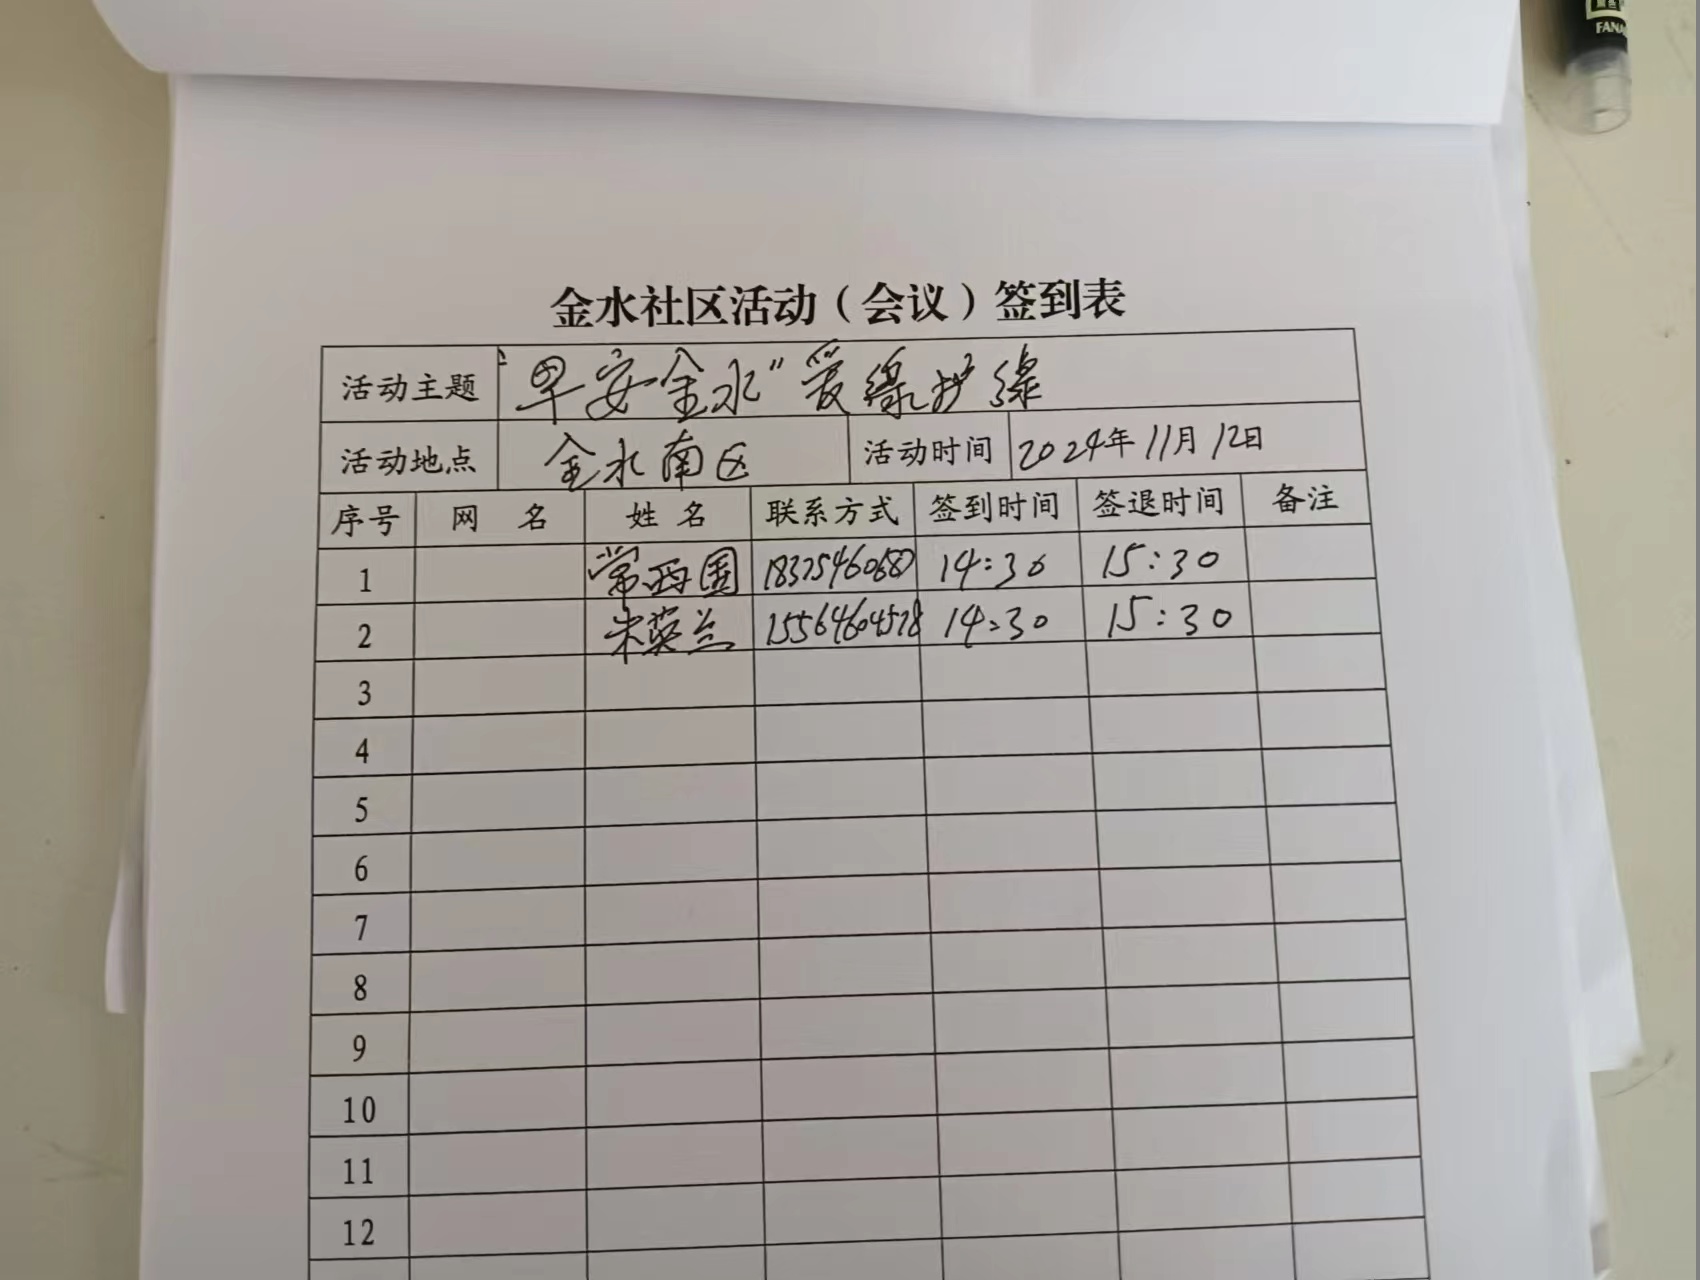 FANA
金水社区活动（会议）签到表
活动主题 “早安金水”爱绿护绿
活动地点 金水南区 活动时间 2024年11月12日
序号 网 名 姓 名 联系方式 签到时间 签退时间 备注
1 常西国 14:30 15:30
2 朱英兰 15564604578 14:30 15:30
3
4
5
6
7
8
9
10
11
12